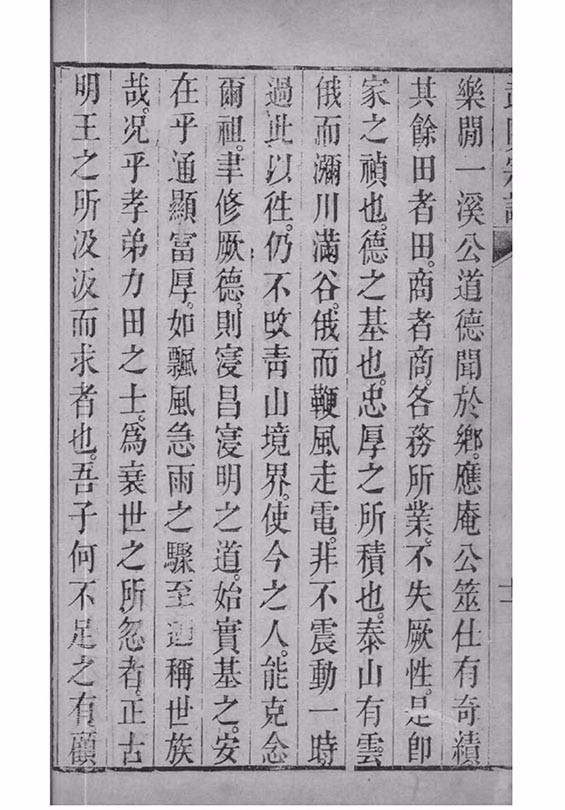 樂閒一溪公道德聞於鄉。應庵公筮仕有奇績
其餘田者田。商者商。各務所業。不失厥性。是卽
家之禎也。德之基也。忠厚之所積也。泰山有雲。
俄而瀰川滿谷。俄而鞭風走電。非不震動一時
過此以徃。仍不改靑山境界。使今之人。能克念
爾祖。聿修厥德。則寖昌寖明之道。始實基之。安
在乎通顯富厚。如飄風急雨之驟至迺稱世族
哉。况乎孝弟力田之士。爲衰世之所忽者。正古
明王之所汲汲而求者也。吾子何不足之有顧